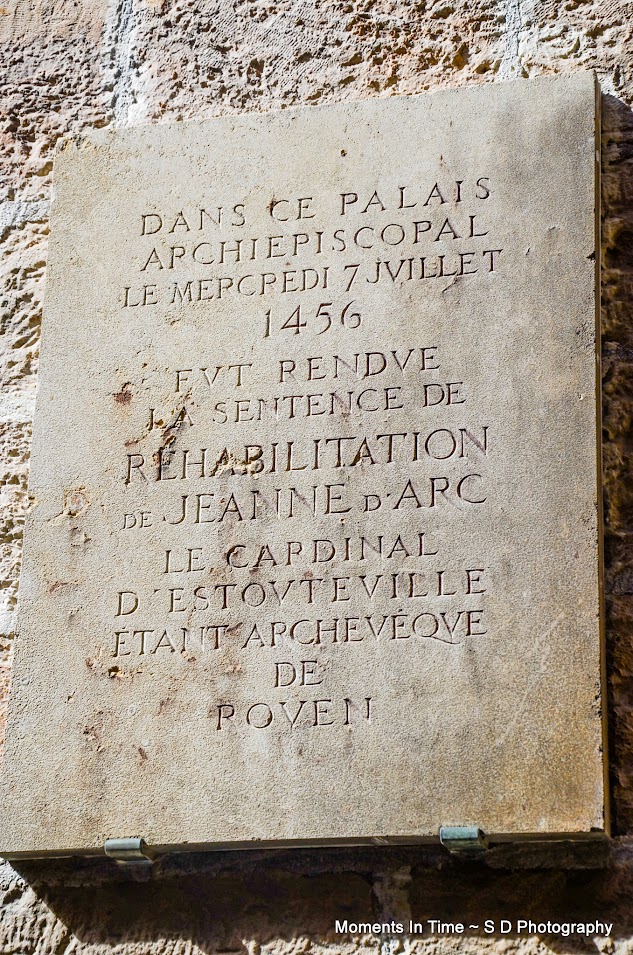 DANS CE PALAIS
ARCHIEPISCOPAL
LE MERCREDI 7 JVILLET
1456
FVT RENDVE
LA SENTENCE DE
REHABILITATION
DE JEANNE D'ARC
LE CARDINAL
D'ESTOVTEVILLE
ÉTANT ARCHEVÉQVE
DE
ROVEN
Moments In Time ~ S D Photography